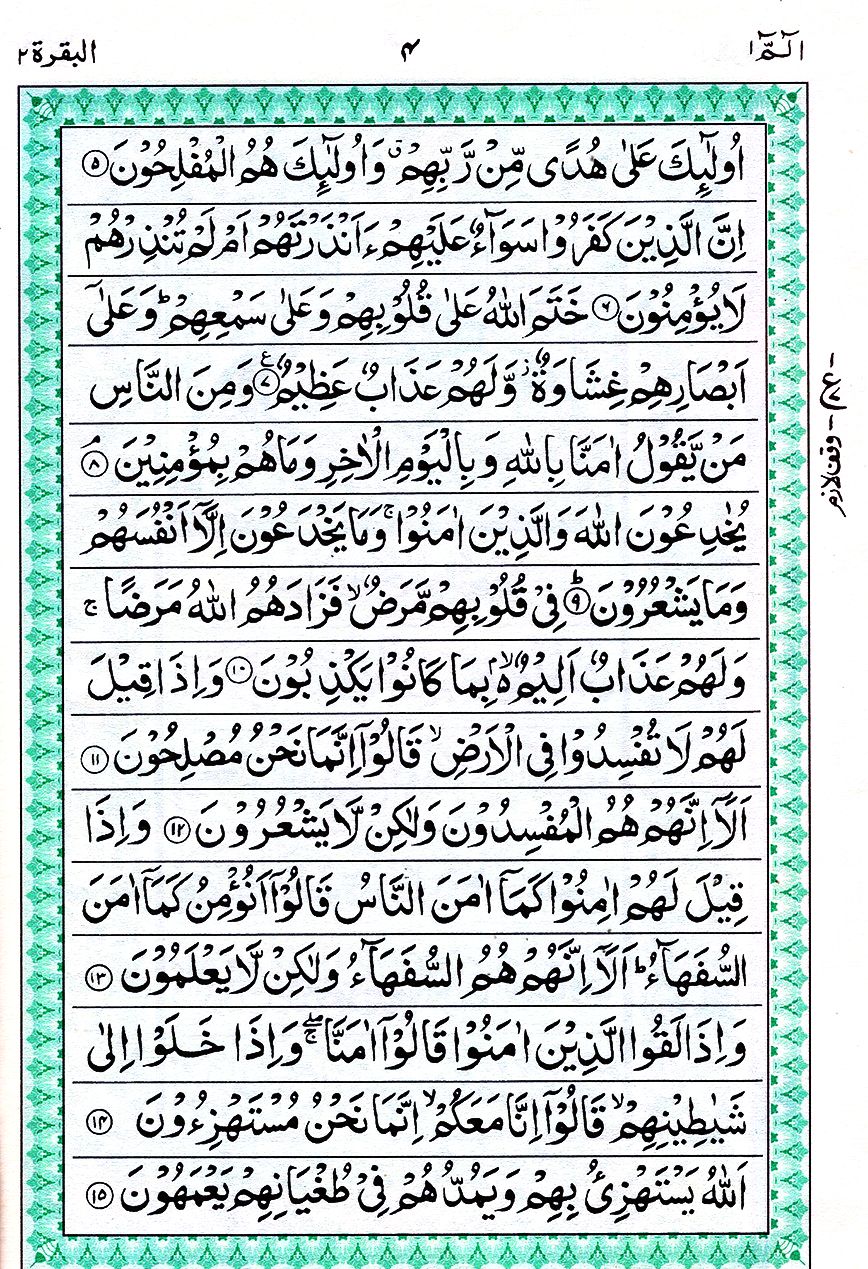 الٓمّٓ ١ ۴ البقرة ٢
اُولٰٓئِكَ عَلٰى هُدًى مِّنْ رَّبِّهِمْ ۗ وَاُولٰٓئِكَ هُمُ الْمُفْلِحُوْنَ ۵
اِنَّ الَّذِيْنَ كَفَرُوْا سَوَآءٌ عَلَيْهِمْ ءَاَنْذَرْتَهُمْ اَمْ لَمْ تُنْذِرْهُمْ
لَا يُؤْمِنُوْنَ ۶ خَتَمَ اللّٰهُ عَلٰى قُلُوْبِهِمْ وَعَلٰى سَمْعِهِمْ ؕ وَعَلٰٓى
اَبْصَارِهِمْ غِشَاوَةٌ ز وَّلَهُمْ عَذَابٌ عَظِيْمٌ ۷ ع وَمِنَ النَّاسِ
مَنْ يَّقُوْلُ اٰمَنَّا بِاللّٰهِ وَبِالْيَوْمِ الْاٰخِرِ وَمَا هُمْ بِمُؤْمِنِيْنَ ۘ ۸
يُخٰدِعُوْنَ اللّٰهَ وَالَّذِيْنَ اٰمَنُوْا ۚ وَمَا يَخْدَعُوْنَ اِلَّآ اَنْفُسَهُمْ
وَمَا يَشْعُرُوْنَ ؕ ۹ فِيْ قُلُوْبِهِمْ مَّرَضٌ ۙ فَزَادَهُمُ اللّٰهُ مَرَضًا ۚ
وَلَهُمْ عَذَابٌ اَلِيْمٌۢ ۙ بِمَا كَانُوْا يَكْذِبُوْنَ ۱۰ وَاِذَا قِيْلَ
لَهُمْ لَا تُفْسِدُوْا فِى الْاَرْضِ ۙ قَالُوْٓا اِنَّمَا نَحْنُ مُصْلِحُوْنَ ۱۱
اَلَآ اِنَّهُمْ هُمُ الْمُفْسِدُوْنَ وَلٰكِنْ لَّا يَشْعُرُوْنَ ۱۲ وَاِذَا
قِيْلَ لَهُمْ اٰمِنُوْا كَمَآ اٰمَنَ النَّاسُ قَالُوْٓا اَنُؤْمِنُ كَمَآ اٰمَنَ
السُّفَهَآءُ ؕ اَلَآ اِنَّهُمْ هُمُ السُّفَهَآءُ وَلٰكِنْ لَّا يَعْلَمُوْنَ ۱۳
وَاِذَا لَقُوا الَّذِيْنَ اٰمَنُوْا قَالُوْٓا اٰمَنَّا ۖۚ وَاِذَا خَلَوْا اِلٰى
شَيٰطِيْنِهِمْ ۙ قَالُوْٓا اِنَّا مَعَكُمْ ۙ اِنَّمَا نَحْنُ مُسْتَهْزِءُوْنَ ۱۴
اَللّٰهُ يَسْتَهْزِئُ بِهِمْ وَيَمُدُّهُمْ فِيْ طُغْيَانِهِمْ يَعْمَهُوْنَ ۱۵
وقف لازم